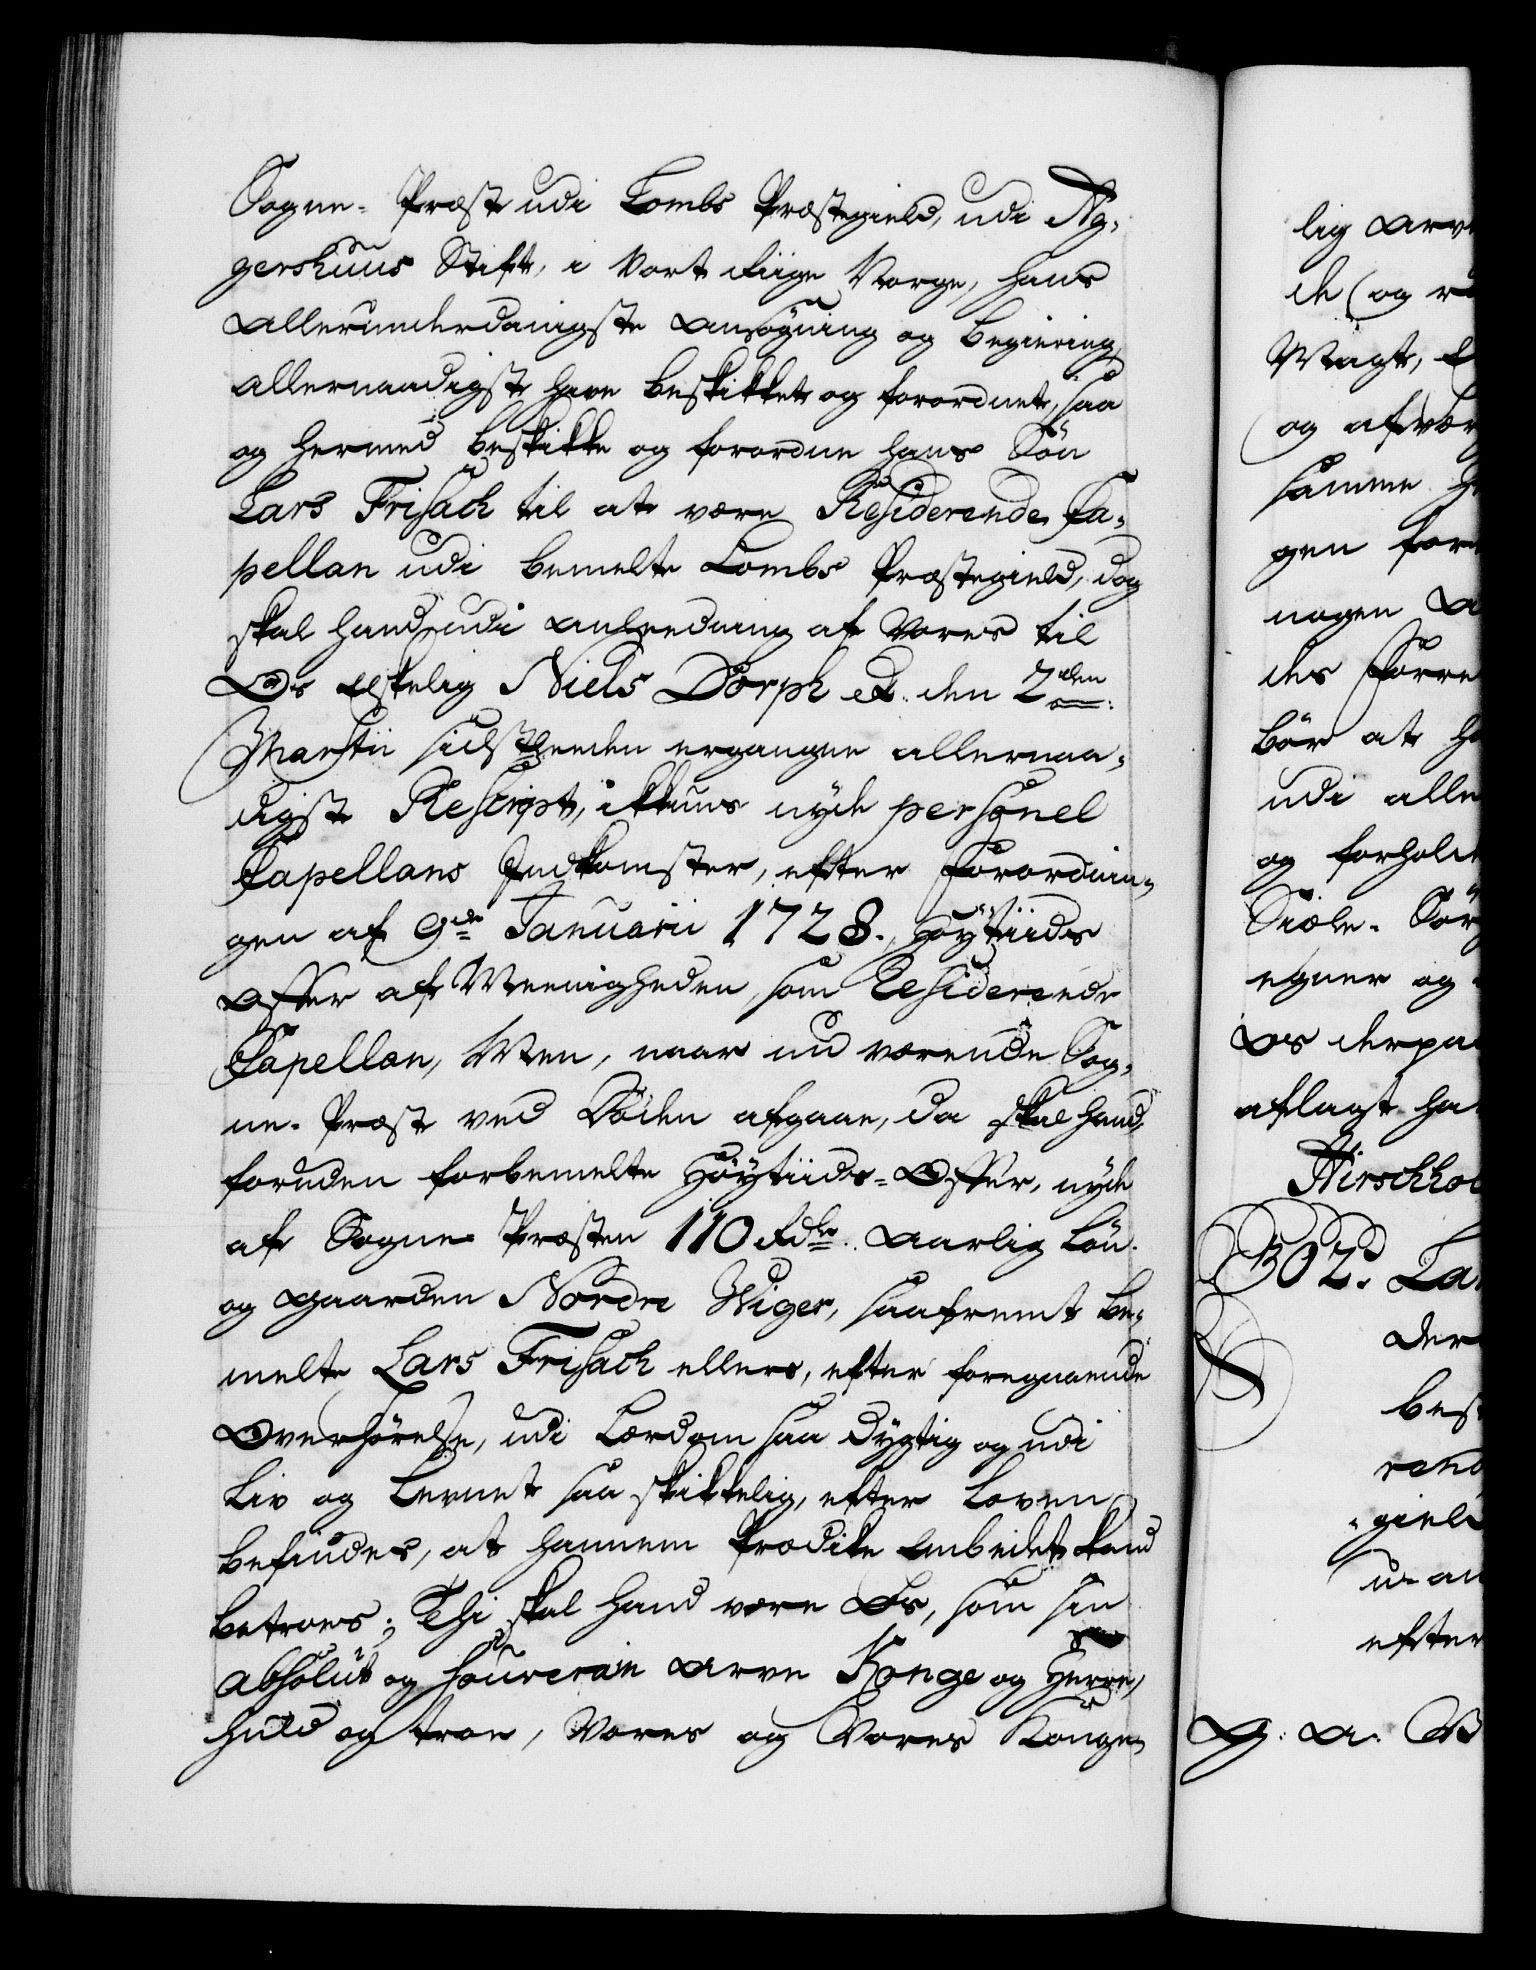 Sogne-Præst udi Lombs Præstegield, udi Ag-
gershuus Stift, i Vort Riige Norge, hans
allerunderdanigste Ansøgning og Begiering,
allernaadigst have beskikket og forordnet, saa
og hermed beskikke og forordne hans Søn
Lars Frisach til at være Residerende Ca-
pellan udi bemelte Lombs Præstegield, dog
skal hand, udi Anleedning af Vores til
Os Elskelig Niels Dorph &. den 2den
Martii sidstleeden ergangne allernaa-
digste Rescript, ikkuns nyde personel
Capellans Indkomster, efter Forordnin-
gen af 9de Januarii 1728., Høytiids
Offer af Meenigheden, som Residerende
Capellan, Men, naar nu værende Sog-
ne-Præst ved Døden afgaaer, da skal hand,
foruden forbemelte Høytiids-Offer, nyde
af Sogne Præsten 110 Rdlr. aarlig Løn.
og Gaarden Nordre Wiger, saafremt be-
melte Lars Frisach ellers, efter foregaaende
Overhørelse, udi Lærdom saa dygtig og udi
Liv og Levnet saa skikkelig, efter Loven
befindes, at hannem Prædike Embedet kand
betroes; Thi skal hand være Os, som sin
absolut og souverain Arve Konge og Herre,
huld og troe, Vores og Vores Konge-
lig Arve
de (og r
Magt, e
og afvær
samme
gen for
nogen
des Forre
bør at ha
udi alle
og forhold
Siæle-Sørg
egner og
Os derpaa
aflagt ha
Hirschhol
302. La
Der
bes
rend
-gield
u-an
efter
G: A: V